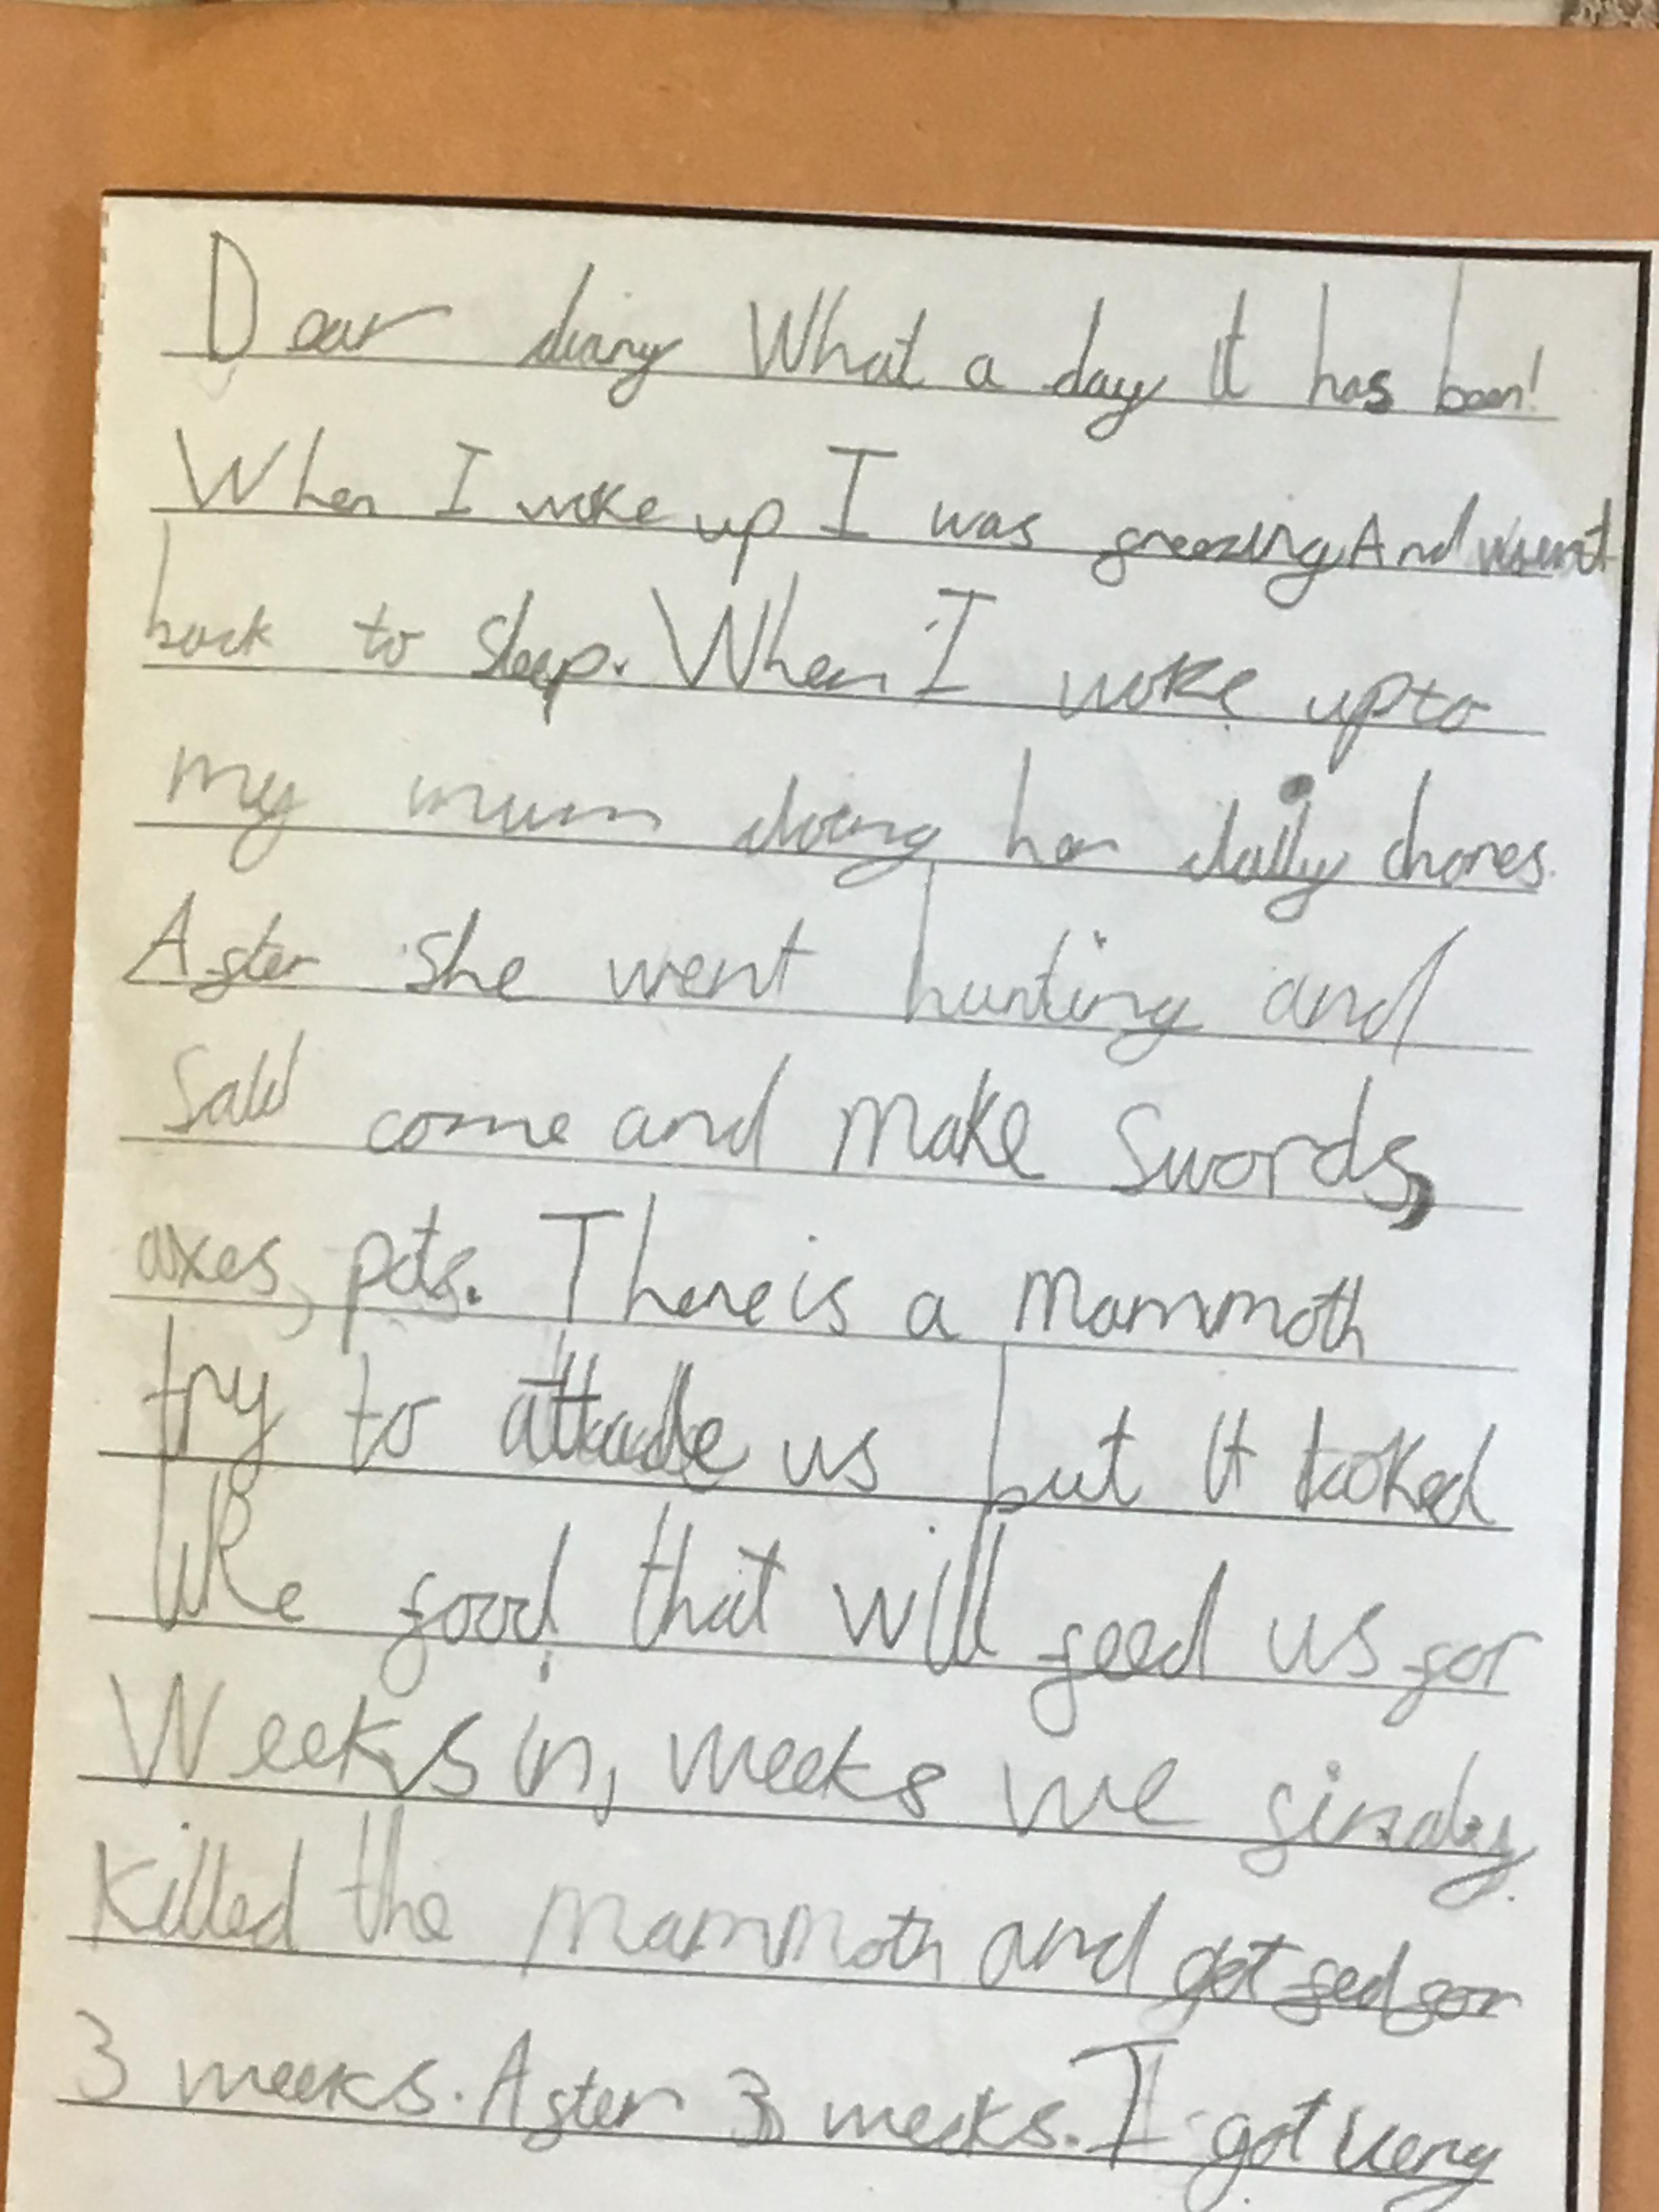 Dear diary What a day It has been!
When I woke up I was freezing And went
back to sleep. When I woke up to
my mum doing her daily chores.
After she went hunting and
said come and make Swords,
axes, pots. There is a Mammoth
try to us but It looked
like food that will feed us for
Weeks in, weeks we finaly
Killed the Mammoth and get fed for
3 weeks. After 3 weeks. I got very